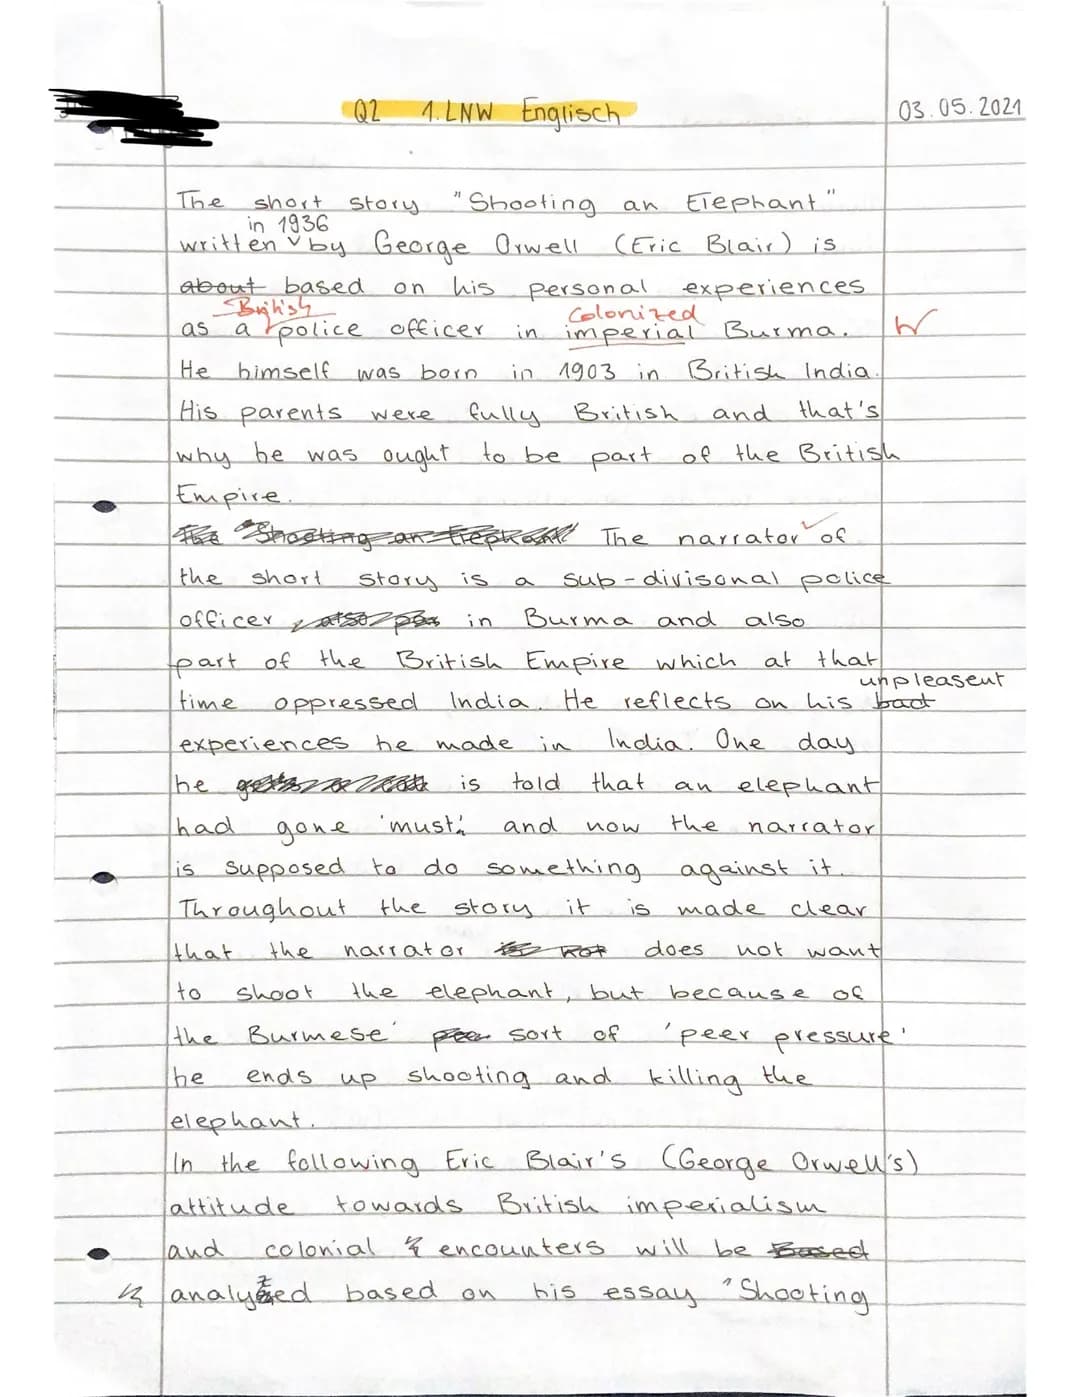 Q2 1. LNW Englisch 03.05.2021
The short story "Shooting an Elephant"
in 1936
written by George Orwell (Eric Blair) is
about based on his personal experiences
British Colonized
as a police officer in imperial Burma. W
He himself was born in 1903 in British India.
His parents were fully British and that's
why he was ought to be part of the British
Empire.
The "Shooting an Elephant" The narrator of
the short story is a sub-divisonal police
officer in Burma and also
part of the British Empire which at that
unpleasent
time oppressed India. He reflects on his bad
experiences he made in India. One day
he is told that an elephant
had gone 'must' and now the narrator
is supposed to do something against it.
Throughout the story it is made clear
that the narrator is not does not want
to shoot the elephant, but because of
the Burmese' peer sort of 'peer pressure'
he ends up shooting and killing the
elephant.
In the following Eric Blair's (George Orwell's)
attitude towards British imperialism
and colonial encounters will be Based
analyzed based on his essay "Shooting